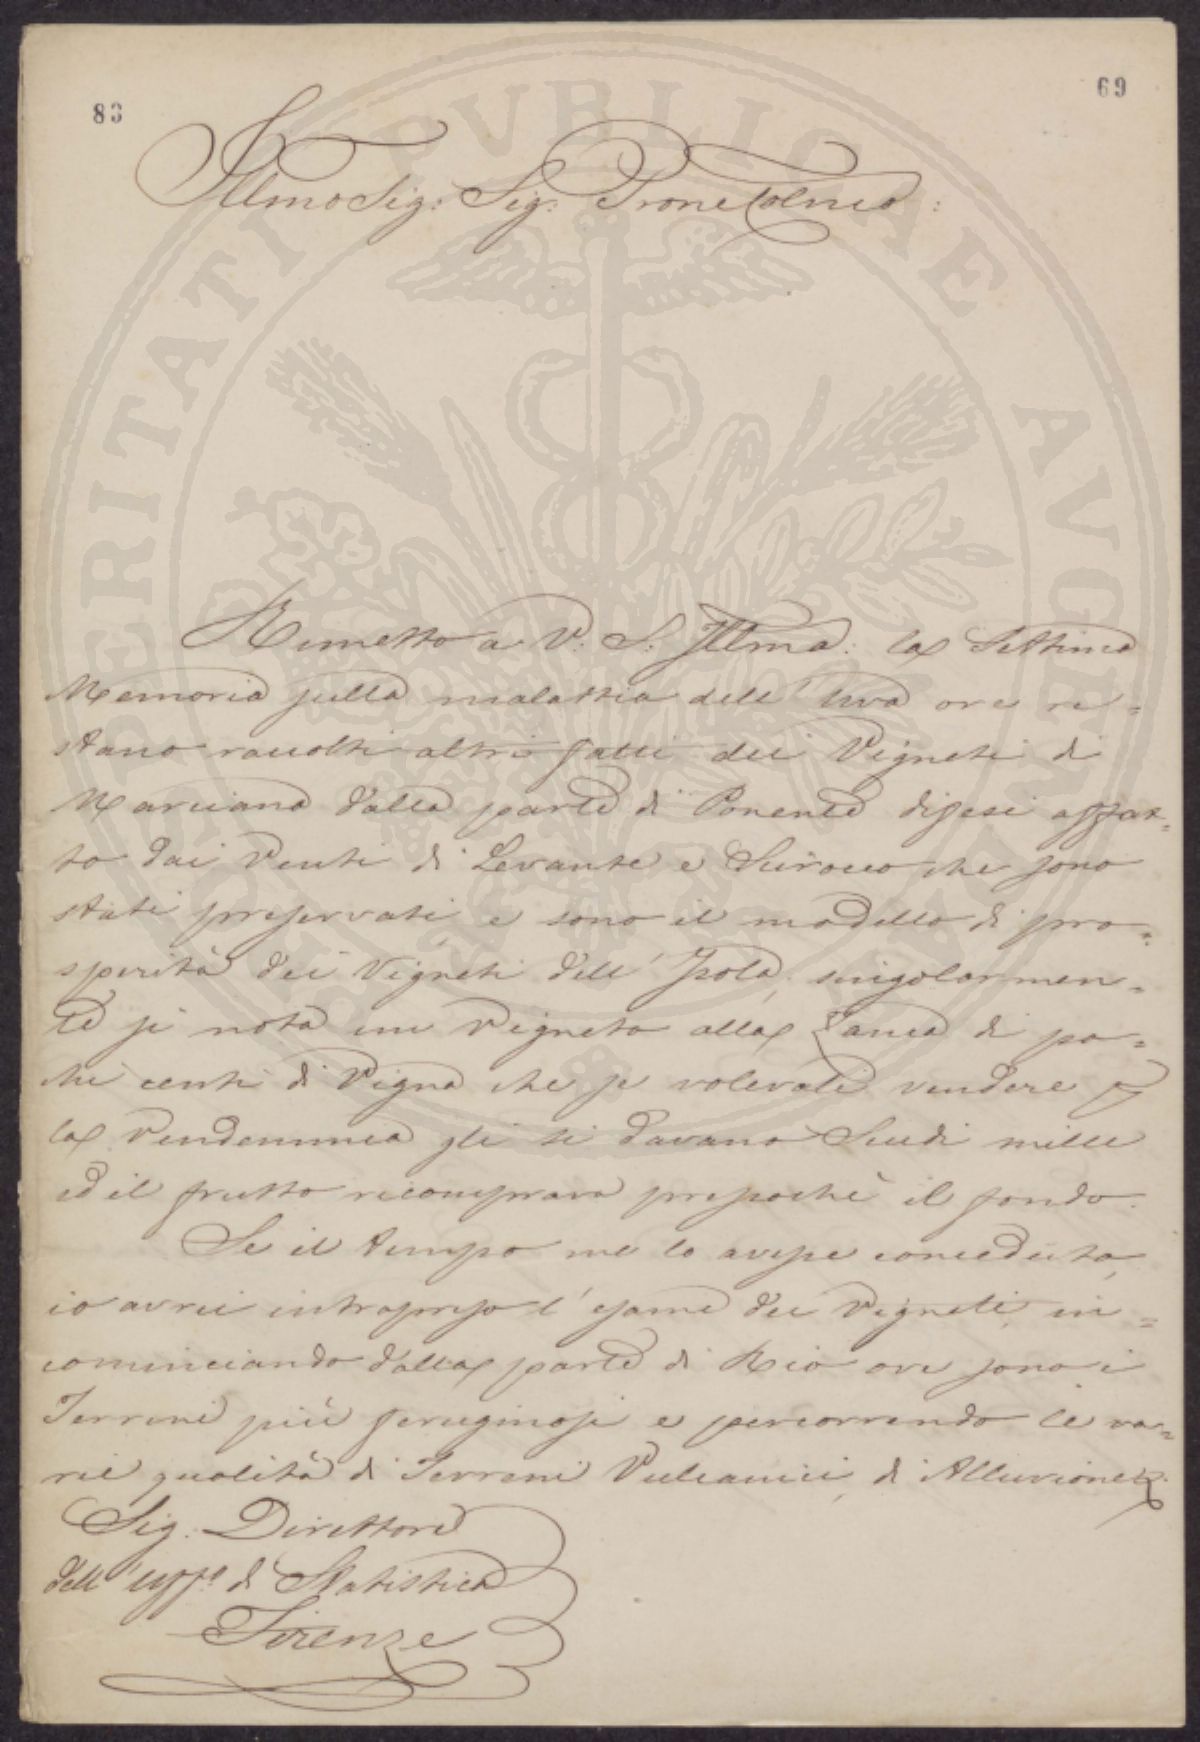 83
69
Illmo Sig: Sig: Prone Colmo:
Rimetto a V: S: Illma: la Settima
Memoria sulla malattia dell'Uva ove re=
stano raccolti altri fatti dei Vigneti di
Marciana dalla parte di Ponente difesi affat=
to dai Venti di Levante e Scirocco che sono
stati preservati, e sono il modello di pro=
sperità dei Vigneti dell'Isola, singolarmen=
te si nota un Vigneto alla Zanca di po=
chi centi di Vigna che se volevali vendere
la Vendemmia gli si davano Scudi mille
ed il frutto ricomprava pressochè il fondo.
Se il tempo me lo avesse conceduto,
io avrei intrapreso l'esame dei Vigneti, in=
cominciando dalla parte di Rio ove sono i
Terreni più feruginosi e percorrendo le va=
rie qualità di Terreni Vulcanici, di Alluvione
Sig: Direttore
dell'Uffo di Statistica
Firenze
PERITATI PVBLICAE AVGENDAE